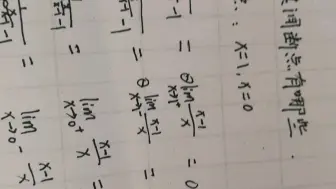 间断点有哪些.
: x=1, x=0
-1 = ① lim x→1⁺ x-1/x = 0
-1 = ② lim x→1⁻ x-1/x =
-1 = lim x→0⁺ x-1/x =
-1 lim x→0⁻ x-1/x